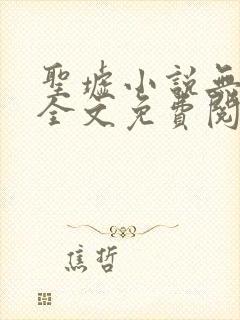 聖墟小說無
全文免費閱
焦哲